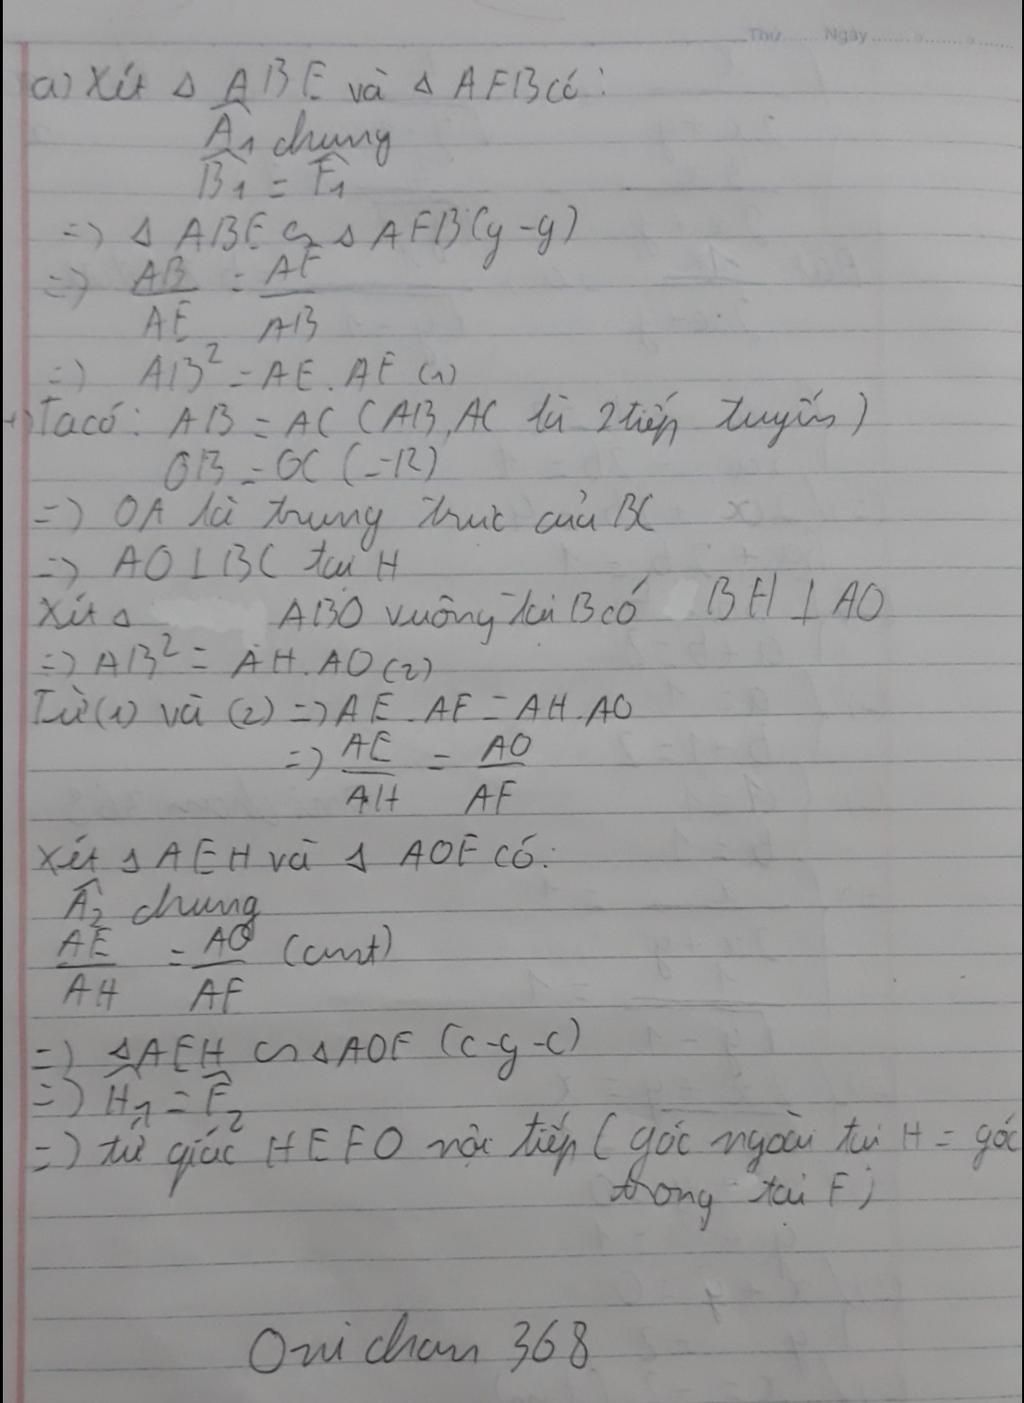 Thứ Ngày
a) Xét Δ ABE và Δ AFB có:
Â₁ chung
B̂₁ = F̂₁
=> Δ ABE ∽ Δ AFB (g-g)
=> AB/AE = AF/AB
=> AB² = AE. AF (1)
+) Ta có: AB = AC (AB, AC là 2 tiếp tuyến)
OB = OC (=R)
=> OA là trung trực của BC
=> AO ⊥ BC tại H
Xét Δ ABO vuông tại B có BH ⊥ AO
=> AB² = AH. AO (2)
Từ (1) và (2) => AE. AF = AH. AO
=> AE/AH = AO/AF
Xét Δ AEH và Δ AOF có:
Â₂ chung
AE/AH = AO/AF (cmt)
=> Δ AEH ∽ Δ AOF (c-g-c)
=> Ĥ₁ = F̂₂
=> tứ giác HEFO nội tiếp (góc ngoài tại H = góc
trong tại F)
Onichan 368